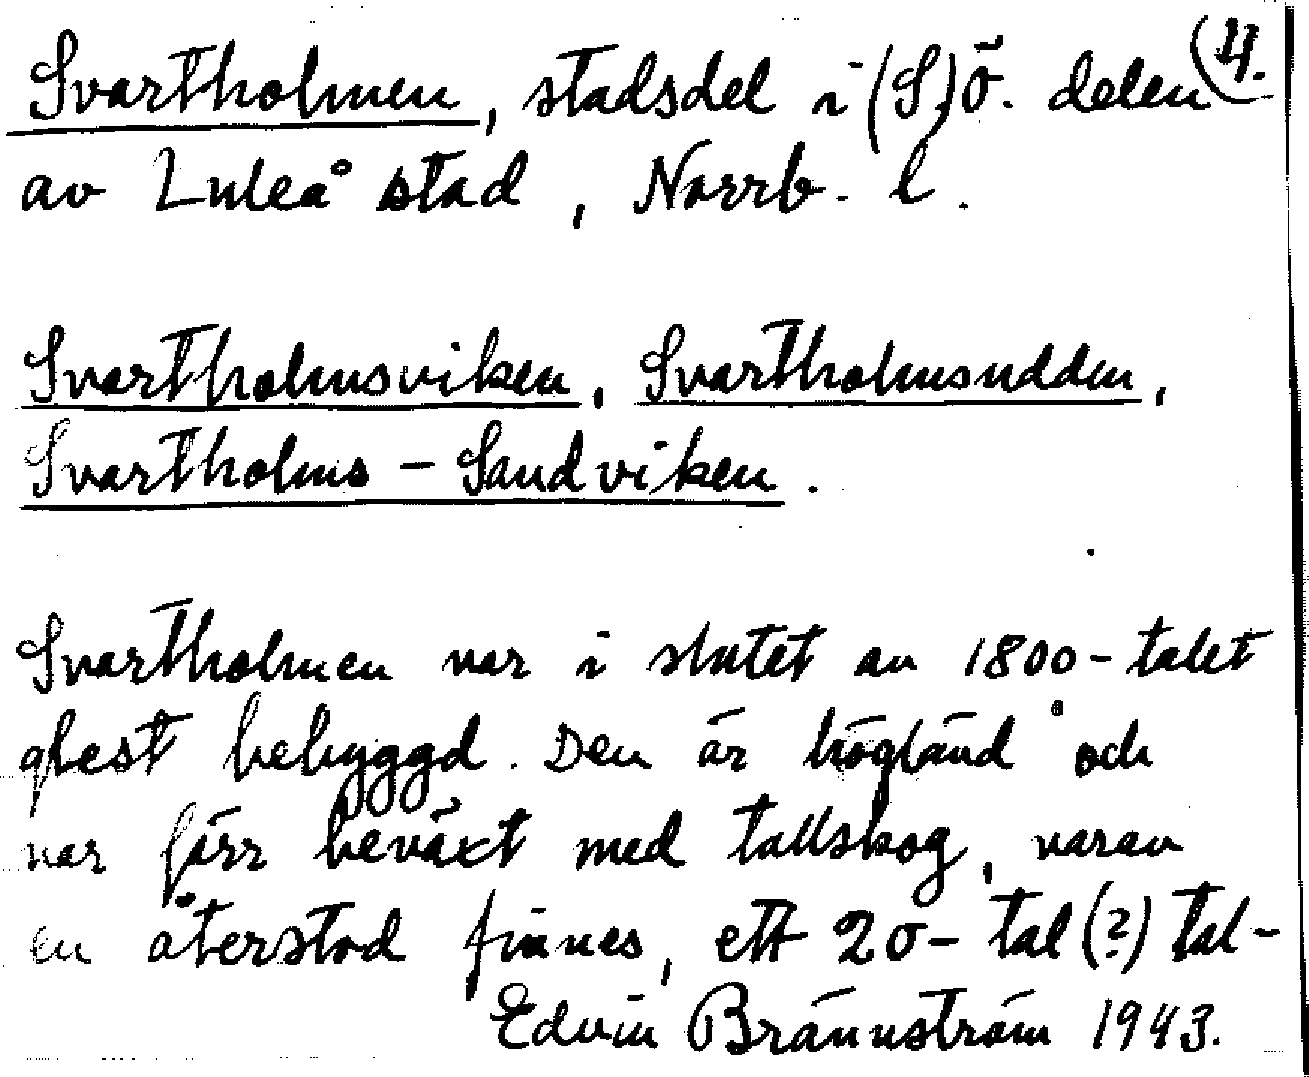 Svartholmen, stadsdel i (S)ö. delen (4.
av Luleå stad, Norrb. l.
Svartholmsviken, Svartholmsudden,
Svartholms-Sandviken.
Svartholmen var i slutet av 1800-talet
glest bebyggd. Den är högländ och
var förr beväxt med tallskog, varav
en återstod finnes, ett 20-tal (?) tal-
Edvin Brännström 1943.